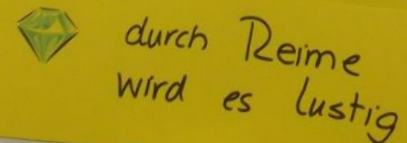 durch Reime
wird es lustig